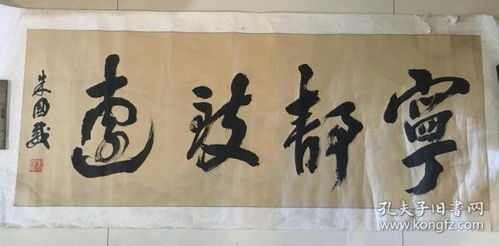 寧靜致遠
朱國義
孔夫子旧书网
www.kongfz.com